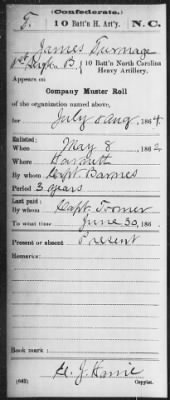 (Confederate.)
T. 10 Batt'n H. Art'y. N.C.
James Turnage
Co. B, 10 Batt'n North Carolina
Heavy Artillery.
Appears on
Company Muster Roll
of the organization named above,
for July & Aug, 1864.
Enlisted:
When May 8, 1862
Where Harnett
By whom Capt. Barnes
Period 3 years
Last paid:
By whom Capt. Toomer
To what time June 30, 186
Present or absent Present
Remarks:
Book mark:
(642) Copyist.